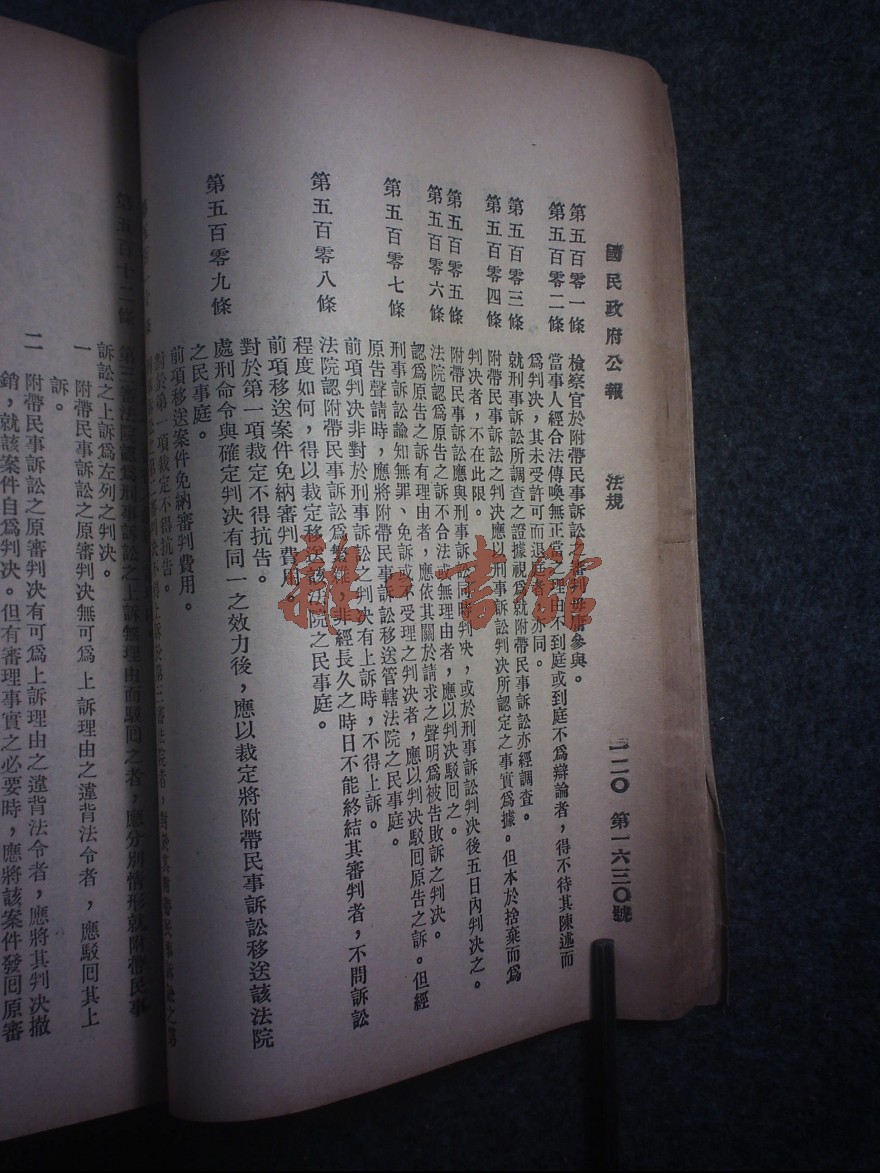 國民政府公報　法規　一二〇　第一六三〇號
第五百零一條　檢察官於附帶民事訴訟之審判毋庸參與。
第五百零二條　當事人經合法傳喚無正當理由不到庭或到庭不爲辯論者，得不待其陳述而
爲判決，其未受許可而退庭者亦同。
第五百零三條　就刑事訴訟所調查之證據視爲就附帶民事訴訟亦經調查。
第五百零四條　附帶民事訴訟之判決應以刑事訴訟判決所認定之事實爲據。但本於捨棄而爲
判決者，不在此限。
第五百零五條　附帶民事訴訟應與刑事訴訟同時判決，或於刑事訴訟判決後五日內判決之。
第五百零六條　法院認爲原告之訴不合法或無理由者，應以判決駁回之。
認爲原告之訴有理由者，應依其關於請求之聲明爲被告敗訴之判決。
第五百零七條　刑事訴訟諭知無罪、免訴或不受理之判決者，應以判決駁回原告之訴。但經
原告聲請時，應將附帶民事訴訟移送管轄法院之民事庭。
前項判決非對於刑事訴訟之判決有上訴時，不得上訴。
第五百零八條　法院認附帶民事訴訟爲繁雜，非經長久之時日不能終結其審判者，不問訴訟
程度如何，得以裁定移送該法院之民事庭。
前項移送案件免納審判費用。
對於第一項裁定不得抗告。
第五百零九條　處刑命令與確定判決有同一之效力後，應以裁定將附帶民事訴訟移送該法院
之民事庭。
前項移送案件免納審判費用。
對於第一項裁定不得抗告。
第三審法院認爲刑事訴訟之上訴無理由而駁回之者，應分別情形就附帶民事
訴訟之上訴爲左列之判決。
一　附帶民事訴訟之原審判決無可爲上訴理由之違背法令者，應駁回其上
訴。
二　附帶民事訴訟之原審判決有可爲上訴理由之違背法令者，應將其判決撤
銷，就該案件自爲判決。但有審理事實之必要時，應將該案件發回原審
雜·書館